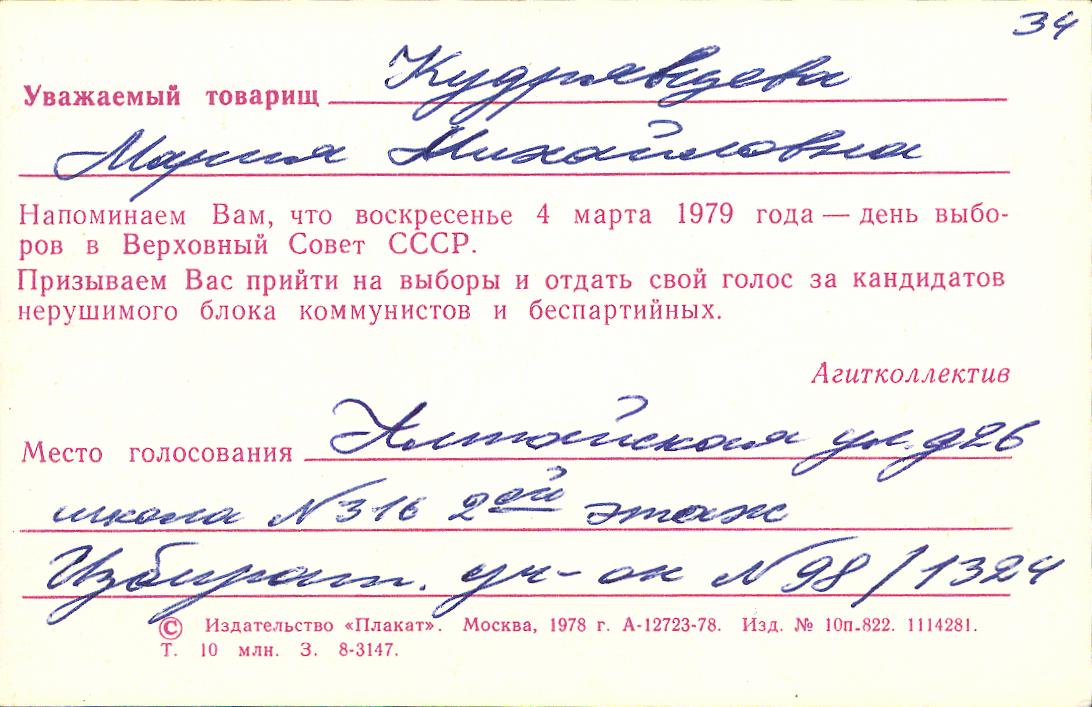 34
Уважаемый товарищ Кудрявцева
Мария Михайловна
Напоминаем Вам, что воскресенье 4 марта 1979 года — день выбо-
ров в Верховный Совет СССР.
Призываем Вас прийти на выборы и отдать свой голос за кандидатов
нерушимого блока коммунистов и беспартийных.
Агитколлектив
Место голосования Алтайская ул. д 26
школа N 316 2ой этаж
Избират. уч-ок N 98/1324
© Издательство «Плакат». Москва, 1978 г. А-12723-78. Изд. № 10п-822. 1114281.
Т. 10 млн. З. 8-3147.